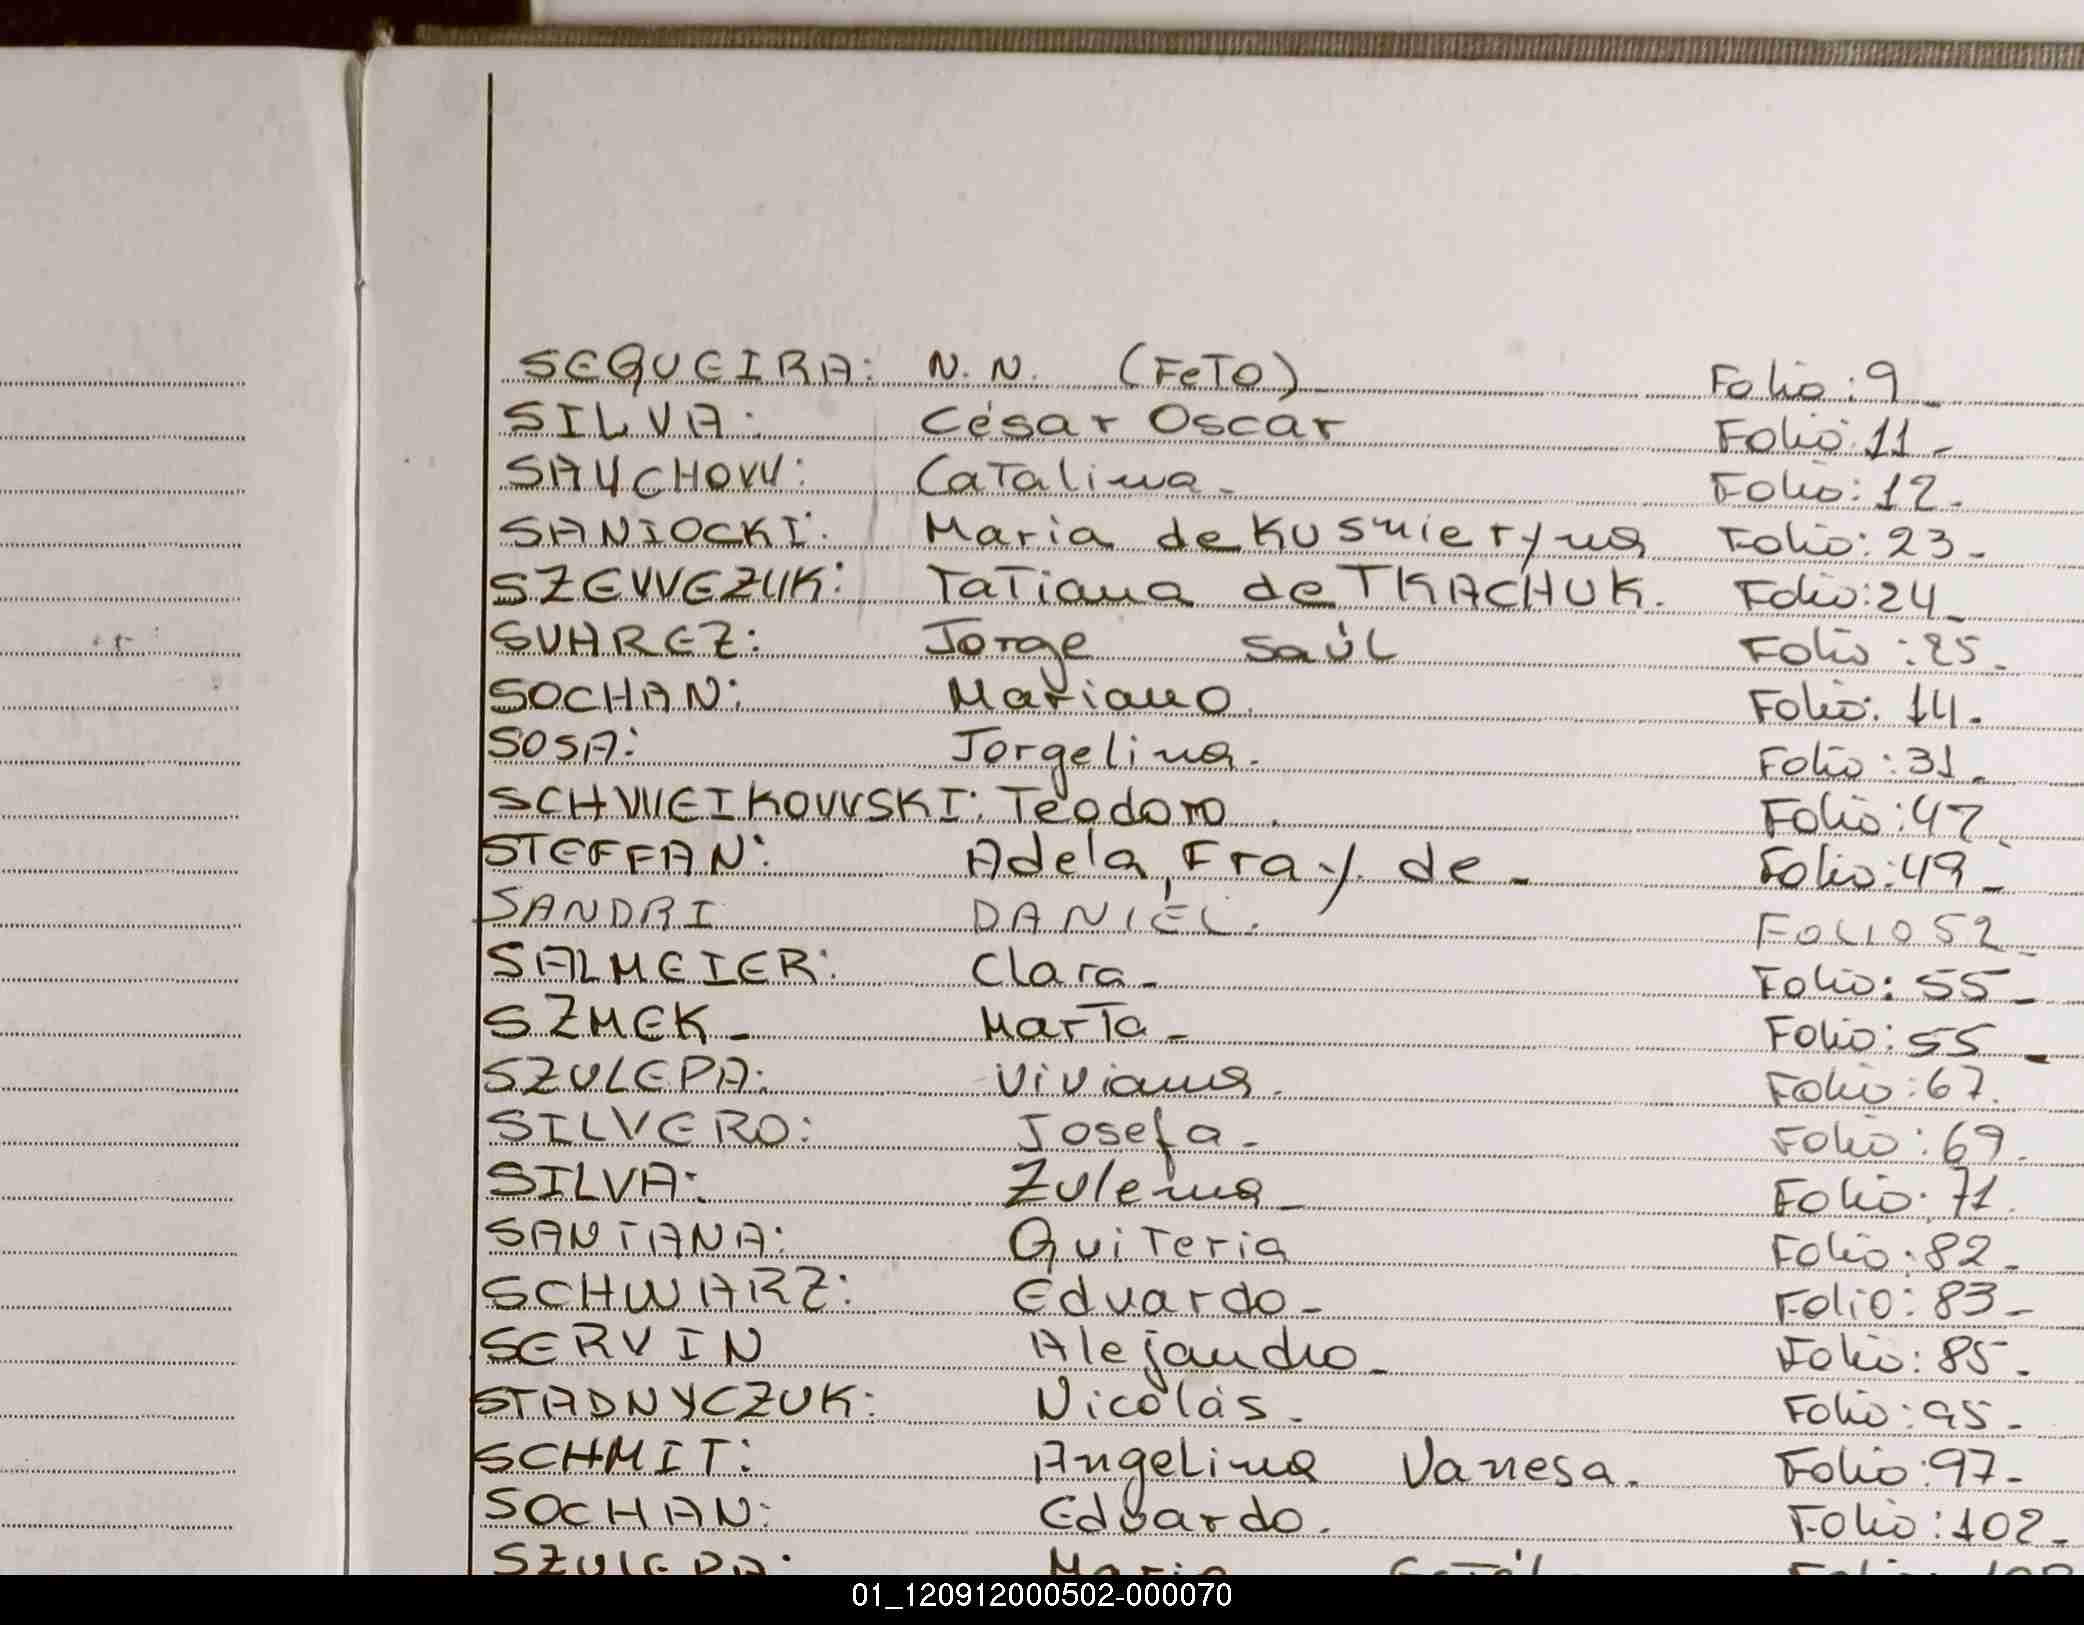 SEQUEIRA: N.N. (FeTO) Folio: 9_
SILVA: César Oscar Folio 11_
SAUCHOW: Catalina_ Folio: 12_
SANIOCKI: Maria de Kusnieryna Folio: 23_
SZEWEZUK: Tatiana de TKACHUK. Folio: 24_
SUAREZ: Jorge Saúl Folio: 25_
SOCHAN: Mariano Folio: 14_
SOSA: Jorgelina. Folio: 31_
SCHWEIKOWSKI: Teodoro Folio: 47
STEFFAN: Adela, Fray de_ Folio: 49_
SANDRI DANIEL. FOLIO 52_
SALMEIER: Clara_ Folio: 55_
SZMEK_ Marta_ Folio: 55_
SZULEPA: Viviana. Folio: 67.
SILVERO: Josefa_ Folio: 69_
SILVA: Zulema_ Folio: 71.
SANTANA: Quiteria Folio: 82_
SCHWARZ: Eduardo_ Folio: 83_
SERVIN Alejandro_ Folio: 85_
STADNYCZUK: Nicolás_ Folio: 95_
SCHMIT: Angelina Vanesa. Folio: 97_
SOCHAN: Eduardo. Folio: 102_
SZULEPA: Maria
01_120912000502-000070